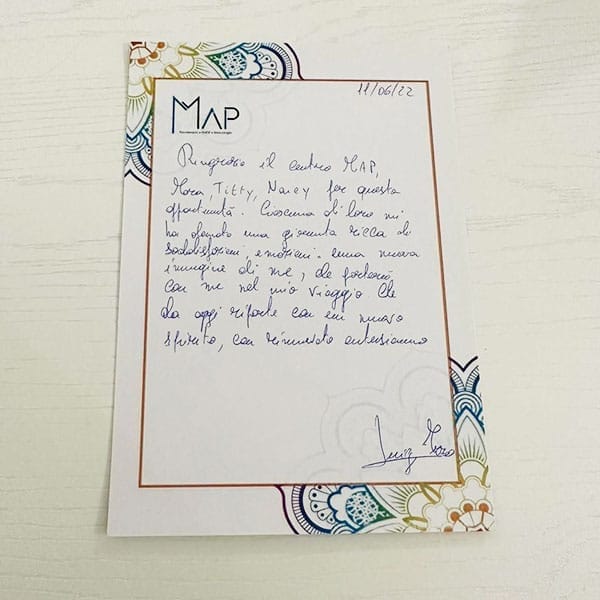 11/06/22
MAP
Ringrazio il centro MAP,
Mara, Titty, Nancy per questa
opportunità. Ciascuna di loro mi
ha donato una giornata ricca di
soddisfazioni, emozioni. una nuova
immagine di me, da portare
con me nel mio viaggio che
da oggi riparte con un nuovo
spirito, con rinnovato entusiasmo